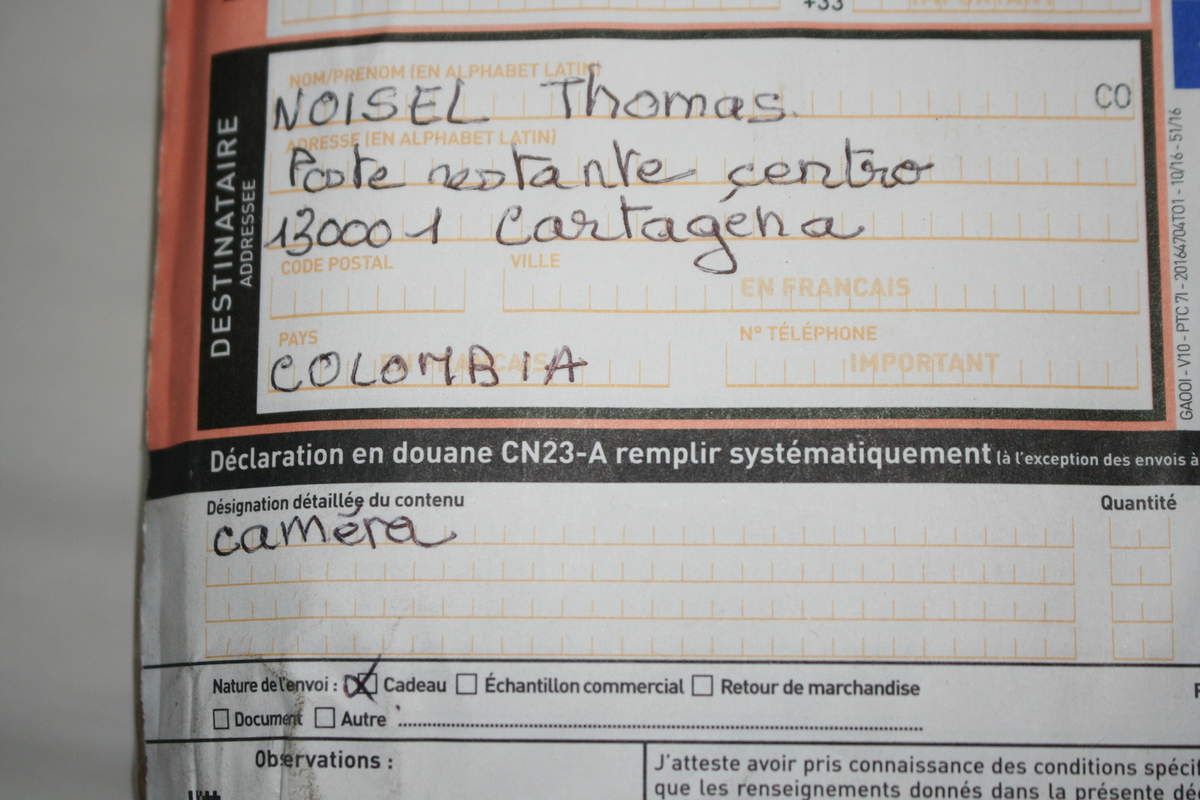 +33
IMPORTANT
NOM/PRENOM (EN ALPHABET LATIN)
NOISEL Thomas
CO
ADRESSE (EN ALPHABET LATIN)
Poste restante centro
130001 Cartagéna
CODE POSTAL VILLE
EN FRANCAIS
PAYS N° TÉLÉPHONE
EN FRANCAIS IMPORTANT
COLOMBIA
DESTINATAIRE
ADDRESSEE
GA001 - V10 - PTC 71 - 20164704T01 - 10/16 - 51/16
Déclaration en douane CN23-A remplir systématiquement (à l'exception des envois à
Désignation détaillée du contenu Quantité
caméra
Nature de l'envoi : Cadeau Échantillon commercial Retour de marchandise
Document Autre
Observations :
J'atteste avoir pris connaissance des conditions spécif
que les renseignements donnés dans la présente dé